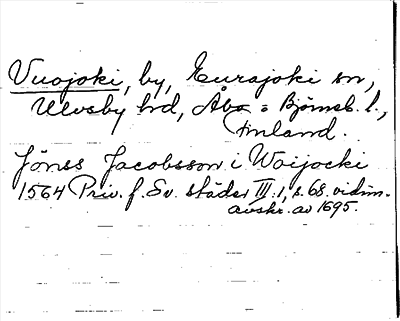 Vuojoki, by, Eurajoki sn,
Ulvsby hd, Åbo o Björneb. l.,
Finland.
Jönss Jacobsson i Woijocki
1564 Priv. f. Sv. städer III:1, s. 68. vidim.
avskr. av 1695.